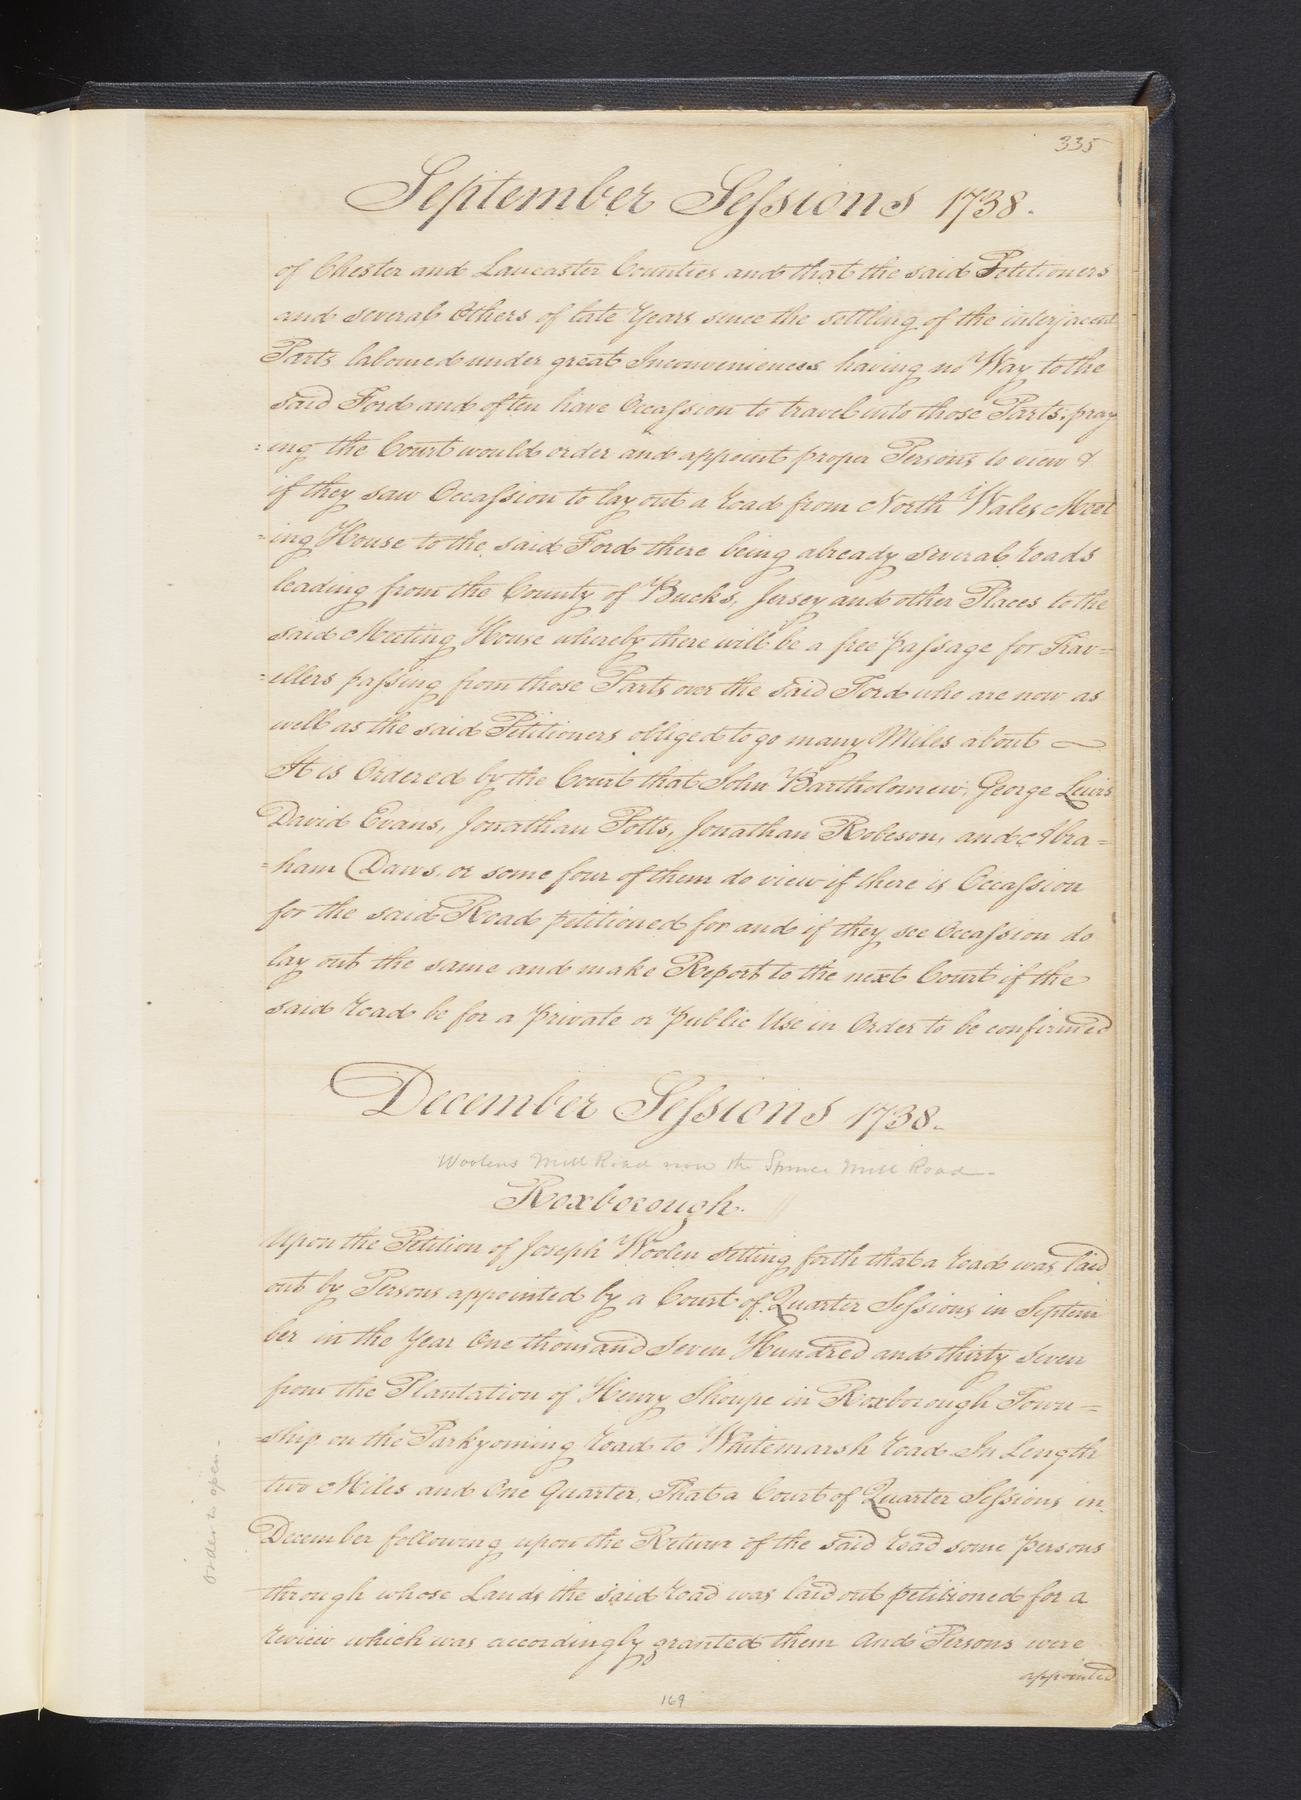 335
September Sessions 1738.
of Chester and Lancaster Counties and that the said Petitioners
and several Others of late Years since the settling of the interjacent
Parts laboured under great Inconveniences having no Way to the
said Ford and often have Occassion to travel into those Parts, pray
=ing the Court would order and appoint proper Persons to view &
if they saw Occassion to lay out a Road from North Wales Meet
=ing House to the said Ford there being already several roads
leading from the County of Bucks, Jersey and other Places to the
said Meeting House whereby there will be a free passage for Trav=
=ellers passing from those Parts over the said Ford who are now as
well as the said Petitioners obliged to go many Miles about
It is Ordered by the Court that John Bartholomew, George Lewis
David Evans, Jonathan Potts, Jonathan Robeson, and Abra=
=ham Daws, or some four of them do view if there is Occassion
for the said Road petitioned for and if they see Occassion do
lay out the same and make Report to the next Court if the
said road be for a private or public Use in Order to be confirmed
December Sessions 1738.
Woolens Mill Road now the Spruce Mill Road.
Roxborough.
Upon the Petition of Joseph Woolen setting forth that a road was laid
out by Persons appointed by a Court of Quarter Sessions in Septem
ber in the Year One thousand Seven Hundred and thirty Seven
from the Plantation of Henry Shoupe in Roxborough Town=
=ship on the Parkyoming road to Whitemarsh road In Length
two Miles and One Quarter, That a Court of Quarter Sessions in
December following upon the Return of the said road some persons
through whose Lands the said road was laid out petitioned for a
review which was accordingly granted them And Persons were
appointed
Order to open -
169